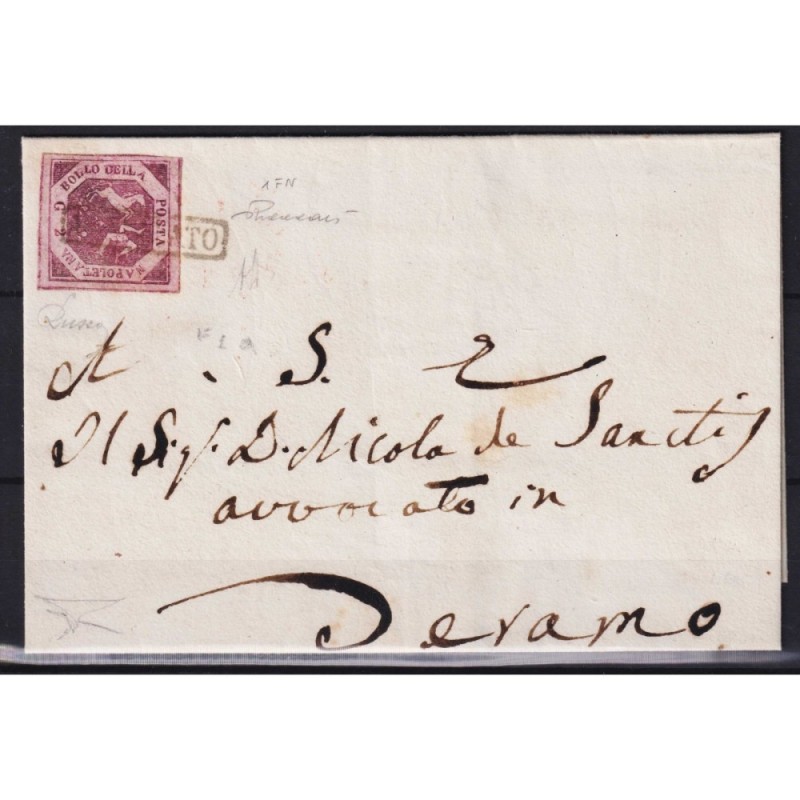 BOLLO DELLA
POSTA
NAPOLETANA
G 2
TO
A . S. E
Il Sig.r D. Nicola de Sanctis
avvocato in
Teramo